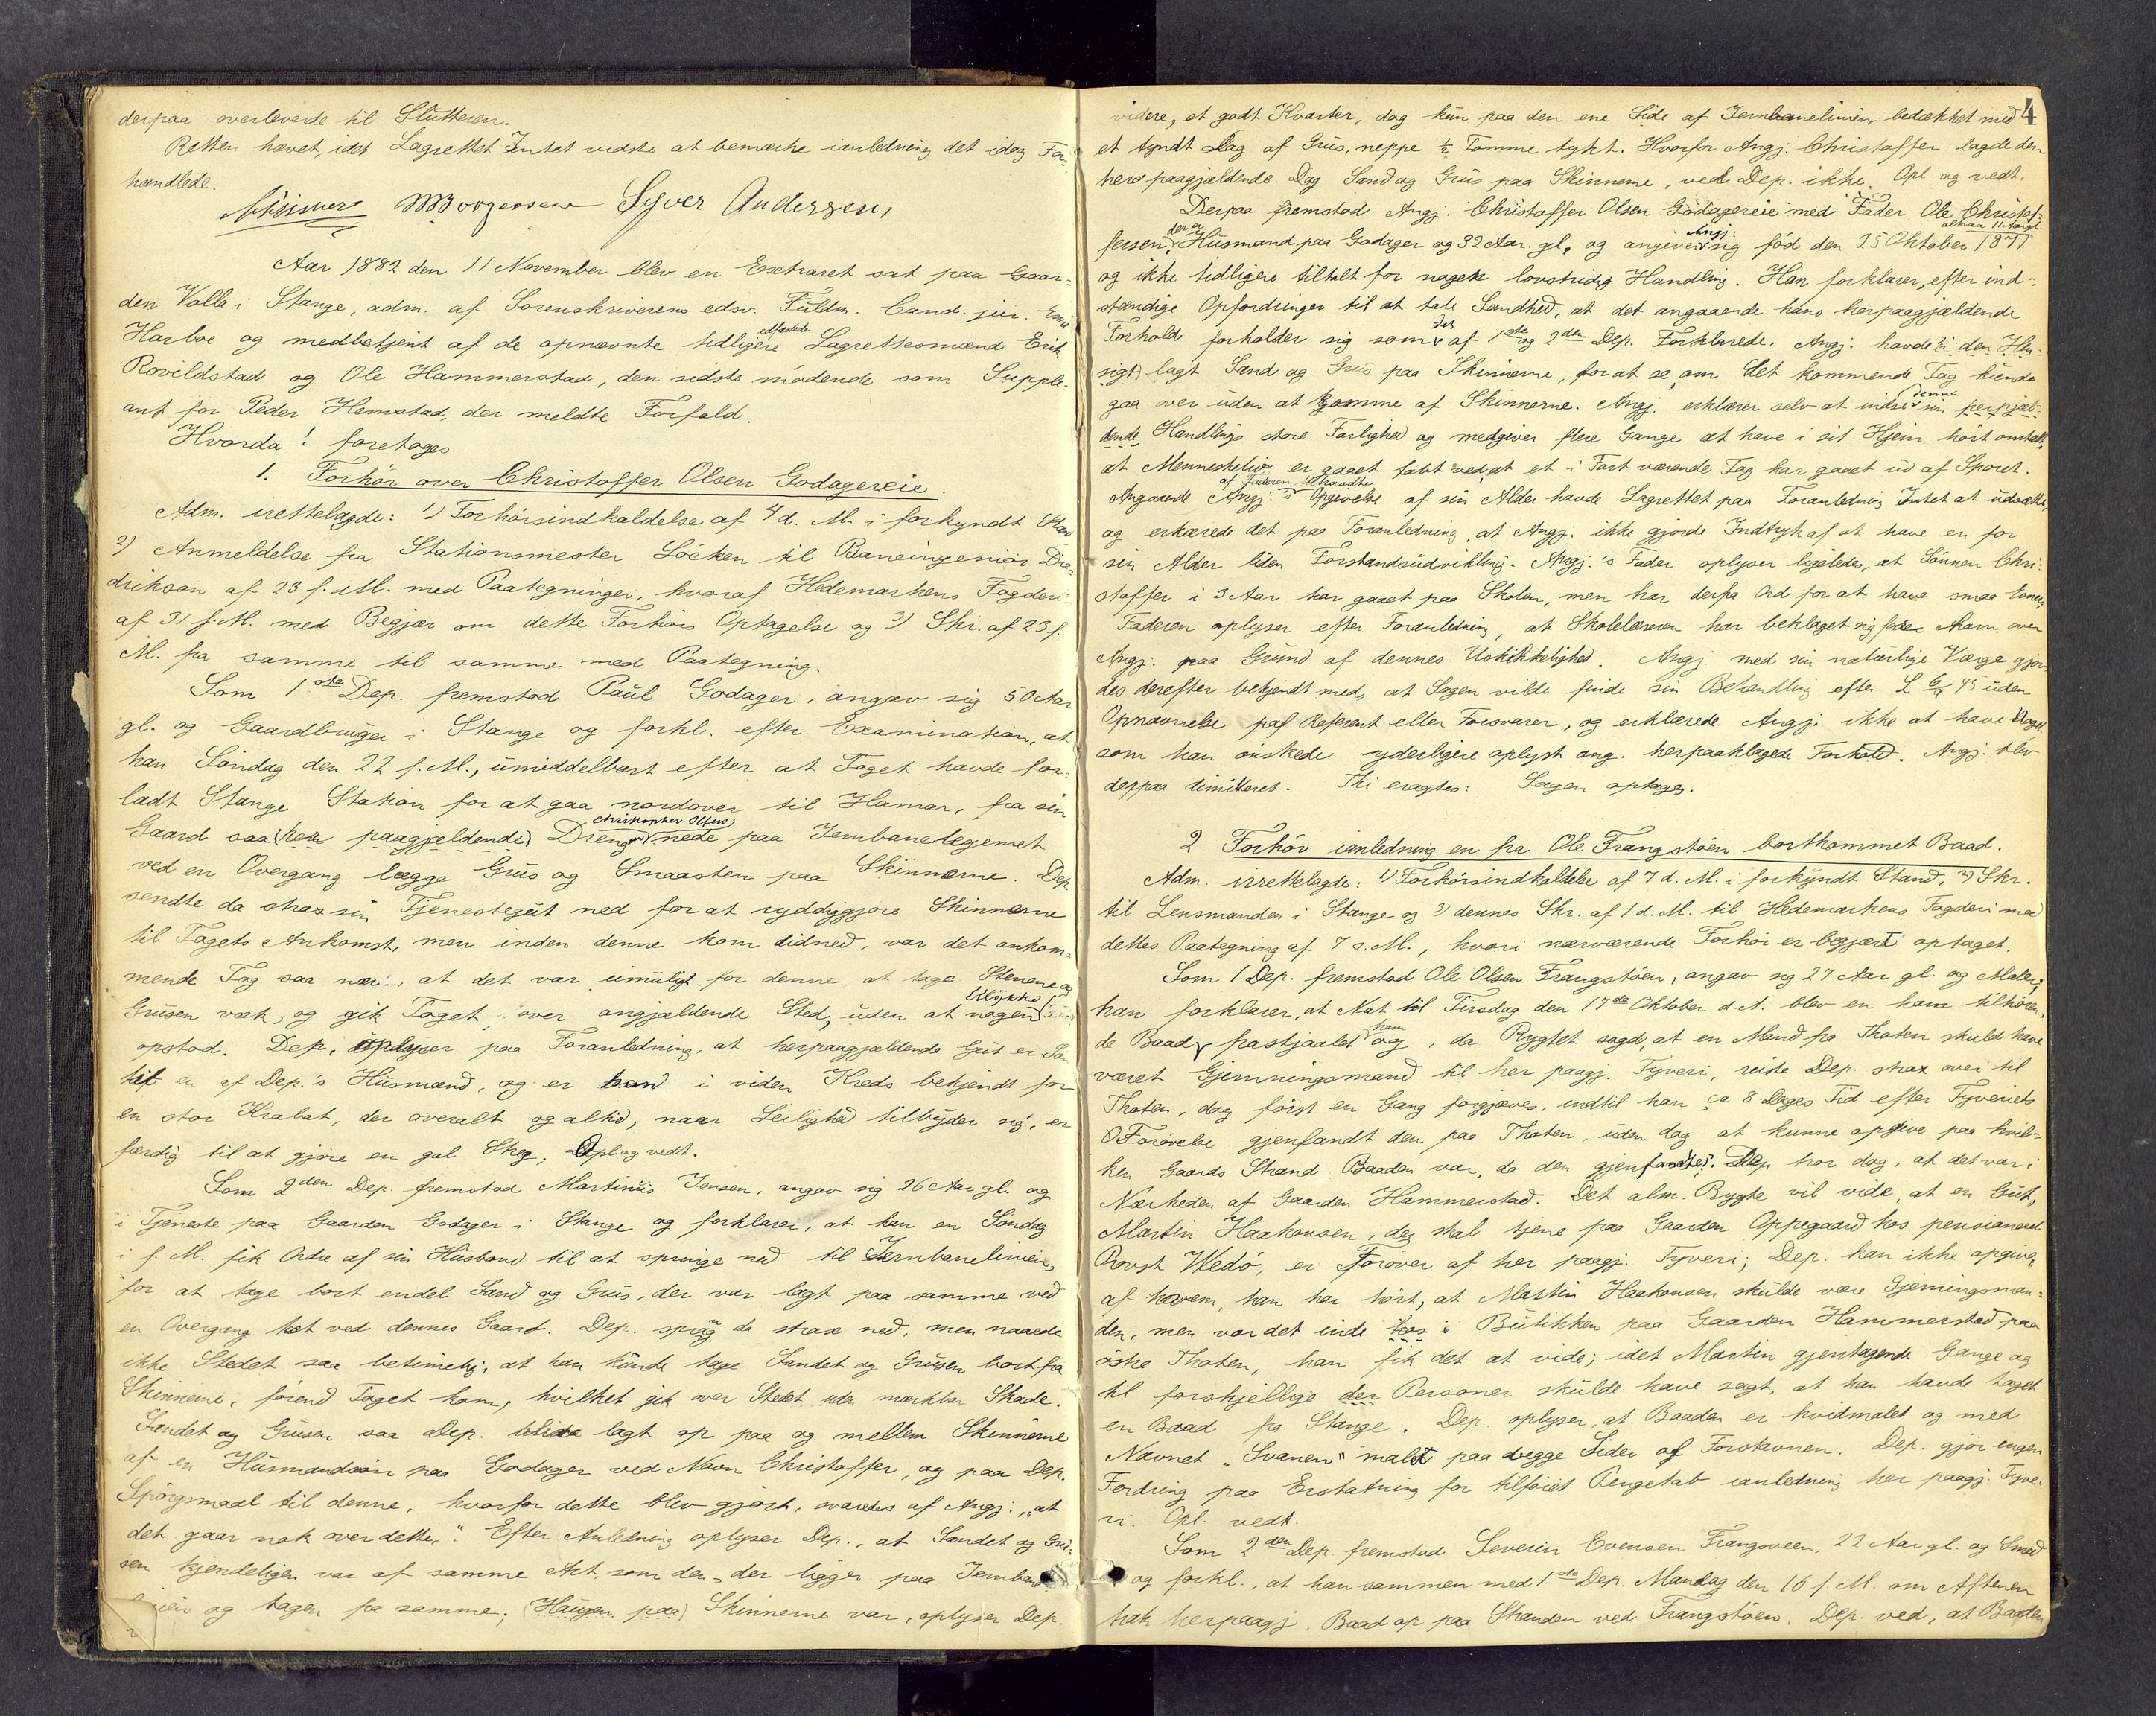 derpaa overleverede til Slutteren.
Retten hævet, idet Lagrettet Intet vidste at bemærke ianledning det idag For-
handlede.
MBorgersen Syver Anderssen,
Aar 1882 den 11 November blev en Extraret sat paa Gaar-
den Volla i Stange, adm. af Sorenskriverens edsv. Fuldm. Cand. jur. Emil
Harboe og medbetjent af de opnævnte tidligere edfæstede Lagrettesmænd Erik
Rovildstad og Ole Hammerstad, den sidste mödende som Supple-
ant for Peder Hemstad, der meldte Forfald.
Hvorda! foretoges
1. Forhör over Christoffer Olsen Godagereie.
Adm. irettelagde: 1) Forhörsindkaldelse af 4 d. M. i forkyndt Stand
2) Anmeldelse fra Stationsmester Löcken til Baneingeniör Die-
drikson af 23 f. M. med Paategninger, hvoraf Hedemarkens Fogderi
af 31 f. M. med Begjær om dette Forhörs Optagelse og 3) Skr. af 23 f.
M. fra samme til samme med Paategning.
Som 1ste Dep. fremstod Paul Godager, angav sig 50 Aar
gl. og Gaardbruger i Stange og forkl. efter Examination, at
han Söndag den 22 f. M., umiddelbart efter at Toget havde for-
ladt Stange Station for at gaa nordover til Hamar, fra sin
Gaard saa (her paagjældende) Dreng Christopher Olsen nede paa Jernbanelegemet
ved en Overgang lægge Grus og Smaasten paa Skinnerne. Dep.
sendte da strax sin Tjenestegut ned for at ryddiggjöre Skinnerne
til Togets Ankomst, men inden denne kom didned, var det ankom-
mende Tog saa nær, at det var umuligt for denne at tage Stenene og
Grusen væk, og gik Toget over angjældende Sted, uden at nogen Ulykke
opstod. Dep. oplyser paa Foranledning, at herpaagjældende Gut er Sön
til en af Dep.'s Husmænd, og er han i viden Kreds bekjendt for
en stor Krabat, der overalt og altid, naar Leilighed tilbyder sig, er
færdig til at gjöre en gal Streg. Opl og vedt.
Som 2den Dep. fremstod Martinius Jensen, angav sig 26 Aar gl. og
i Tjeneste paa Gaarden Godager i Stange og forklarer, at han en Söndag
i f. M. fik Ordre af sin Husbond til at springe ned til Jernbanelinien,
for at tage bort endel Sand og Grus, der var lagt paa samme ved
en Overgang tæt ved dennes Gaard. Dep. sprang da strax ned, men naaede
ikke Stedet saa betimelig, at han kunde tage Sandet og Grusen bort fra
Skinnerne, förend Toget kom, hvilket gik over Stedet uden mærkbar Skade.
Sandet og Grusen saa Dep. lagt op paa og mellem Skinnerne
af en Husmandssön paa Godager ved Navn Christoffer, og paa Dep.
Spörgsmaal til denne, hvorfor dette blev gjort, svaredes af Angj.: „at
det gaar nok over dette." Efter Anledning oplyser Dep., at Sandet og Gru-
sen kjendeligen var af samme Art, som den, der ligger paa Jernbane-
linien og tagen fra samme; (Haugen paa) Skinnerne var, oplyser Dep.
4
videre, et godt Kvarter, dog kun paa den ene Side af Jernbanelinien bedækket med
et tyndt Lag af Grus, neppe ½ Tomme tykt. Hvorfor Angj. Christoffer lagde den
her paagjældende Dag Sand og Grus paa Skinnerne, ved Dep. ikke. Opl. og vedt.
Derpaa fremstod Angj. Christoffer Olsen Godagereie med Fader Ole Christof-
fersen, der er Husmand paa Godager og 32 Aar. gl, og angiver Angj: sig föd den 25 Oktober 1871 altsaa 11 Aar gl.
og ikke tidligere tiltalt for nogen lovstridig Handling. Han forklarer, efter ind-
stændige Opfordringer til at tale Sandhed, at det angaaende hans herpaagjældende
Forhold forholder sig som det af 1ste og 2den Dep. Forklarede. Angj. havde i den Hen-
sigt lagt Sand og Grus paa Skinnerne, for at se, om det kommende Tog kunde
gaa over uden at komme af Skinnerne. Angj. erklærer selv at indse denne sin herpjæl-
dende Handlings store Farlighed og medgiver flere Gange at have i sit Hjem hört omtalt,
at Menneskeliv er gaaet tabt ved, at et i Fart værende Tog har gaaet ud af Sporet.
Angaaende Angj:s af Faderen tiltraadte Opgivelse af sin Alder havde Lagrettet paa Foranledning Intet at udsætte,
og erkærede det paa Foranledning, at Angj. ikke gjorde Indtryk af at have en for
sin Alder liden Forstandsudvikling. Angj.'s Fader oplyser ligeledes, at Sönnen Chri-
stoffer i 3 Aar har gaaet paa Skolen, men har derfra Ord for at have smaa Evner.
Faderen oplyser efter Foranledning, at Skolelæreren har beklaget sig for ham over
Angj. paa Grund af dennes Uskikkelighed. Angj. med sin naturlige Værge gjor-
des derefter bekjendt med, at Sagen vilde finde sin Behandling efter L 6/9 45 uden
Opnævnelse af Referent eller Forsvarer, og erklærede Angj. ikke at have Noget
som han önskede yderligere oplyst ang. herpaaklagede Forhold. Angj. blev
derpaa dimitteret. Thi eragtes: Sagen optages.
2 Forhör ianledning en fra Ole Frangstöen bortkommet Baad.
Adm. irettelagde: 1) Forhörsindkaldelse af 7 d. M. i forkyndt Stand, 2) Skr.
til Lensmanden i Stange og 3) dennes Skr. af 1 d. M. til Hedemarkens Fogderi med
dettes Paategning af 7 s. M., hvori nærværende Forhör er begjært optaget.
Som 1 Dep. fremstod Ole Olsen Frangstöen, angav sig 27 Aar gl. og Maler;
han forklarer, at Nat til Tirsdag den 17de Oktober d. A. blev en ham tilhören-
de Baad ham frastjaalet og, da Rygtet sagde, at en Mand fra Thoten skulde have
været Gjerningsmand til her paagj. Tyveri, reiste Dep. strax over til
Thoten, dog först en Gang forgjæves, indtil han ca 8 Dages Tid efter Tyveriets
Forövelse gjenfandt den paa Thoten, uden dog at kunne opgive paa hvil-
ken Gaards Strand Baaden var, da den gjenfandtes. Dep. tror dog, at det var i
Nærheden af Gaarden Hammerstad. Det alm. Rygte vil vide, at en Gut,
Martin Haakonsen, der skal tjene paa Gaarden Oppegaard hos pensioneret
Provst Wedö, er Foröver af her paagj. Tyveri; Dep. kan ikke opgive,
af hvem, han har hört, at Martin Haakonsen skulde være Gjerningsman-
den, men var det inde i Butikken paa Gaarden Hammerstad paa
östre Thoten, han fik det at vide; idet Martin gjentagende Gange og
til forskjellige der Personer skulde have sagt, at han havde taget
en Baad fra Stange. Dep. oplyser, at Baaden er hvidmalet og med
Navnet „Svanen" malet paa begge Sider af Forstavnen. Dep. gjör ingen
Fordring paa Erstatning for tilföiet Pengetab ianledning her paagj. Tyve-
ri. Opl. vedt.
Som 2den Dep. fremstod Severin Evensen Frangsveen, 22 Aar gl. og Smed
og forkl., at han sammen med 1ste Dep. Mandag den 16 f. M. om Aftenen
trak herpaagj. Baad op paa Stranden ved Frangstöen. Dep. ved, at Baaden